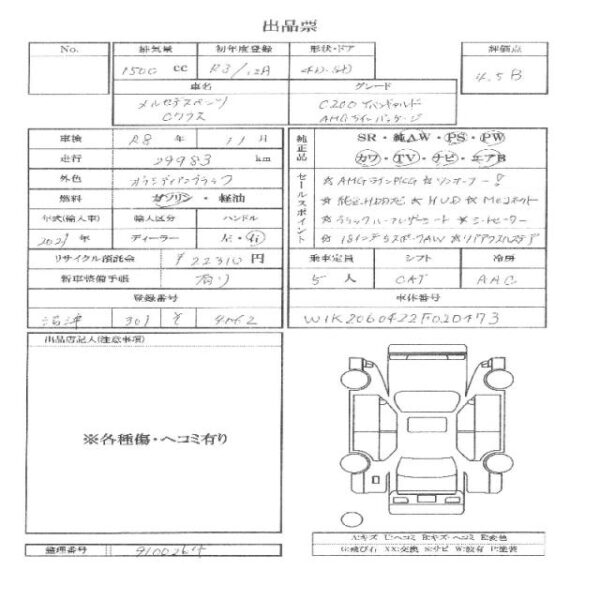 出品票
No. 排気量 初年度登録 形状・ドア 評価点
1500 cc R3/12月 4D・SD 4.5 B
車名 グレード
メルセデスベンツ C200 アバンギャルド
Cクラス AMGラインパッケージ
車検 R8 年 11 月
走行 29983 km
外色 オブシディアンブラック
燃料 ガソリン ・ 軽油
年式(輸入車) 輸入区分 ハンドル
2021 年 ディーラー 左・右
リサイクル預託金 ¥22310 円
新車整備手帳 有り
登録番号
沼津 301 そ
純正品 SR・純AW・PS・PW
カワ・TV・ナビ・エアB
セールスポイント ☆AMGラインPKG ☆ワンオーナー!
☆純正HDDナビ ☆HUD ☆Meコネクト
☆ブラックレザーシート ☆シートヒーター
☆18インチスポークAW ☆リアアクスルステア
乗車定員 シフト 冷房
5 人 CAT AAC
車体番号
W1K2060422F020473
出品店記入(注意事項)
※各種傷・ヘコミ有り
A:キズ U:ヘコミ B:キズ・ヘコミ E:変色
G:飛び石 XX:交換 S:サビ W:波有 P:塗装
整理番号